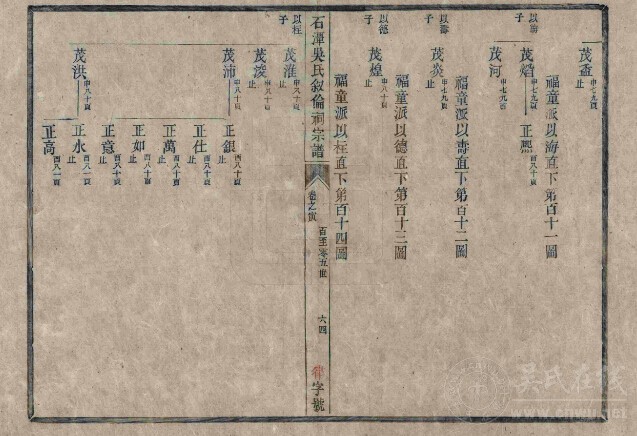 茂孟 申七九頁 止
福童派以海直下第百十一圖
茂熖 申七九頁 正熙 酉八十頁 止
茂河 申七九頁 止
福童派以壽直下第百十二圖
以壽子
茂炎 申七九頁 止
福童派以德直下第百十三圖
以德子
茂煌 申八十頁 止
福童派以桂直下第百十四圖
石潭吳氏叙倫祠宗譜
卷之
百至零五世
六四
字號
以桂子
茂淮 申八十頁 止
茂浚 申八十頁 止
茂沛 申八十頁
正銀 酉八十頁 止
正仕 酉八十頁 止
正萬 酉八十頁 止
正如 酉八十頁 止
正意 酉八十頁 止
茂洪 申八十頁
正永 酉八一頁 止
正高 酉八一頁
吳氏在线
www.cnwu.net